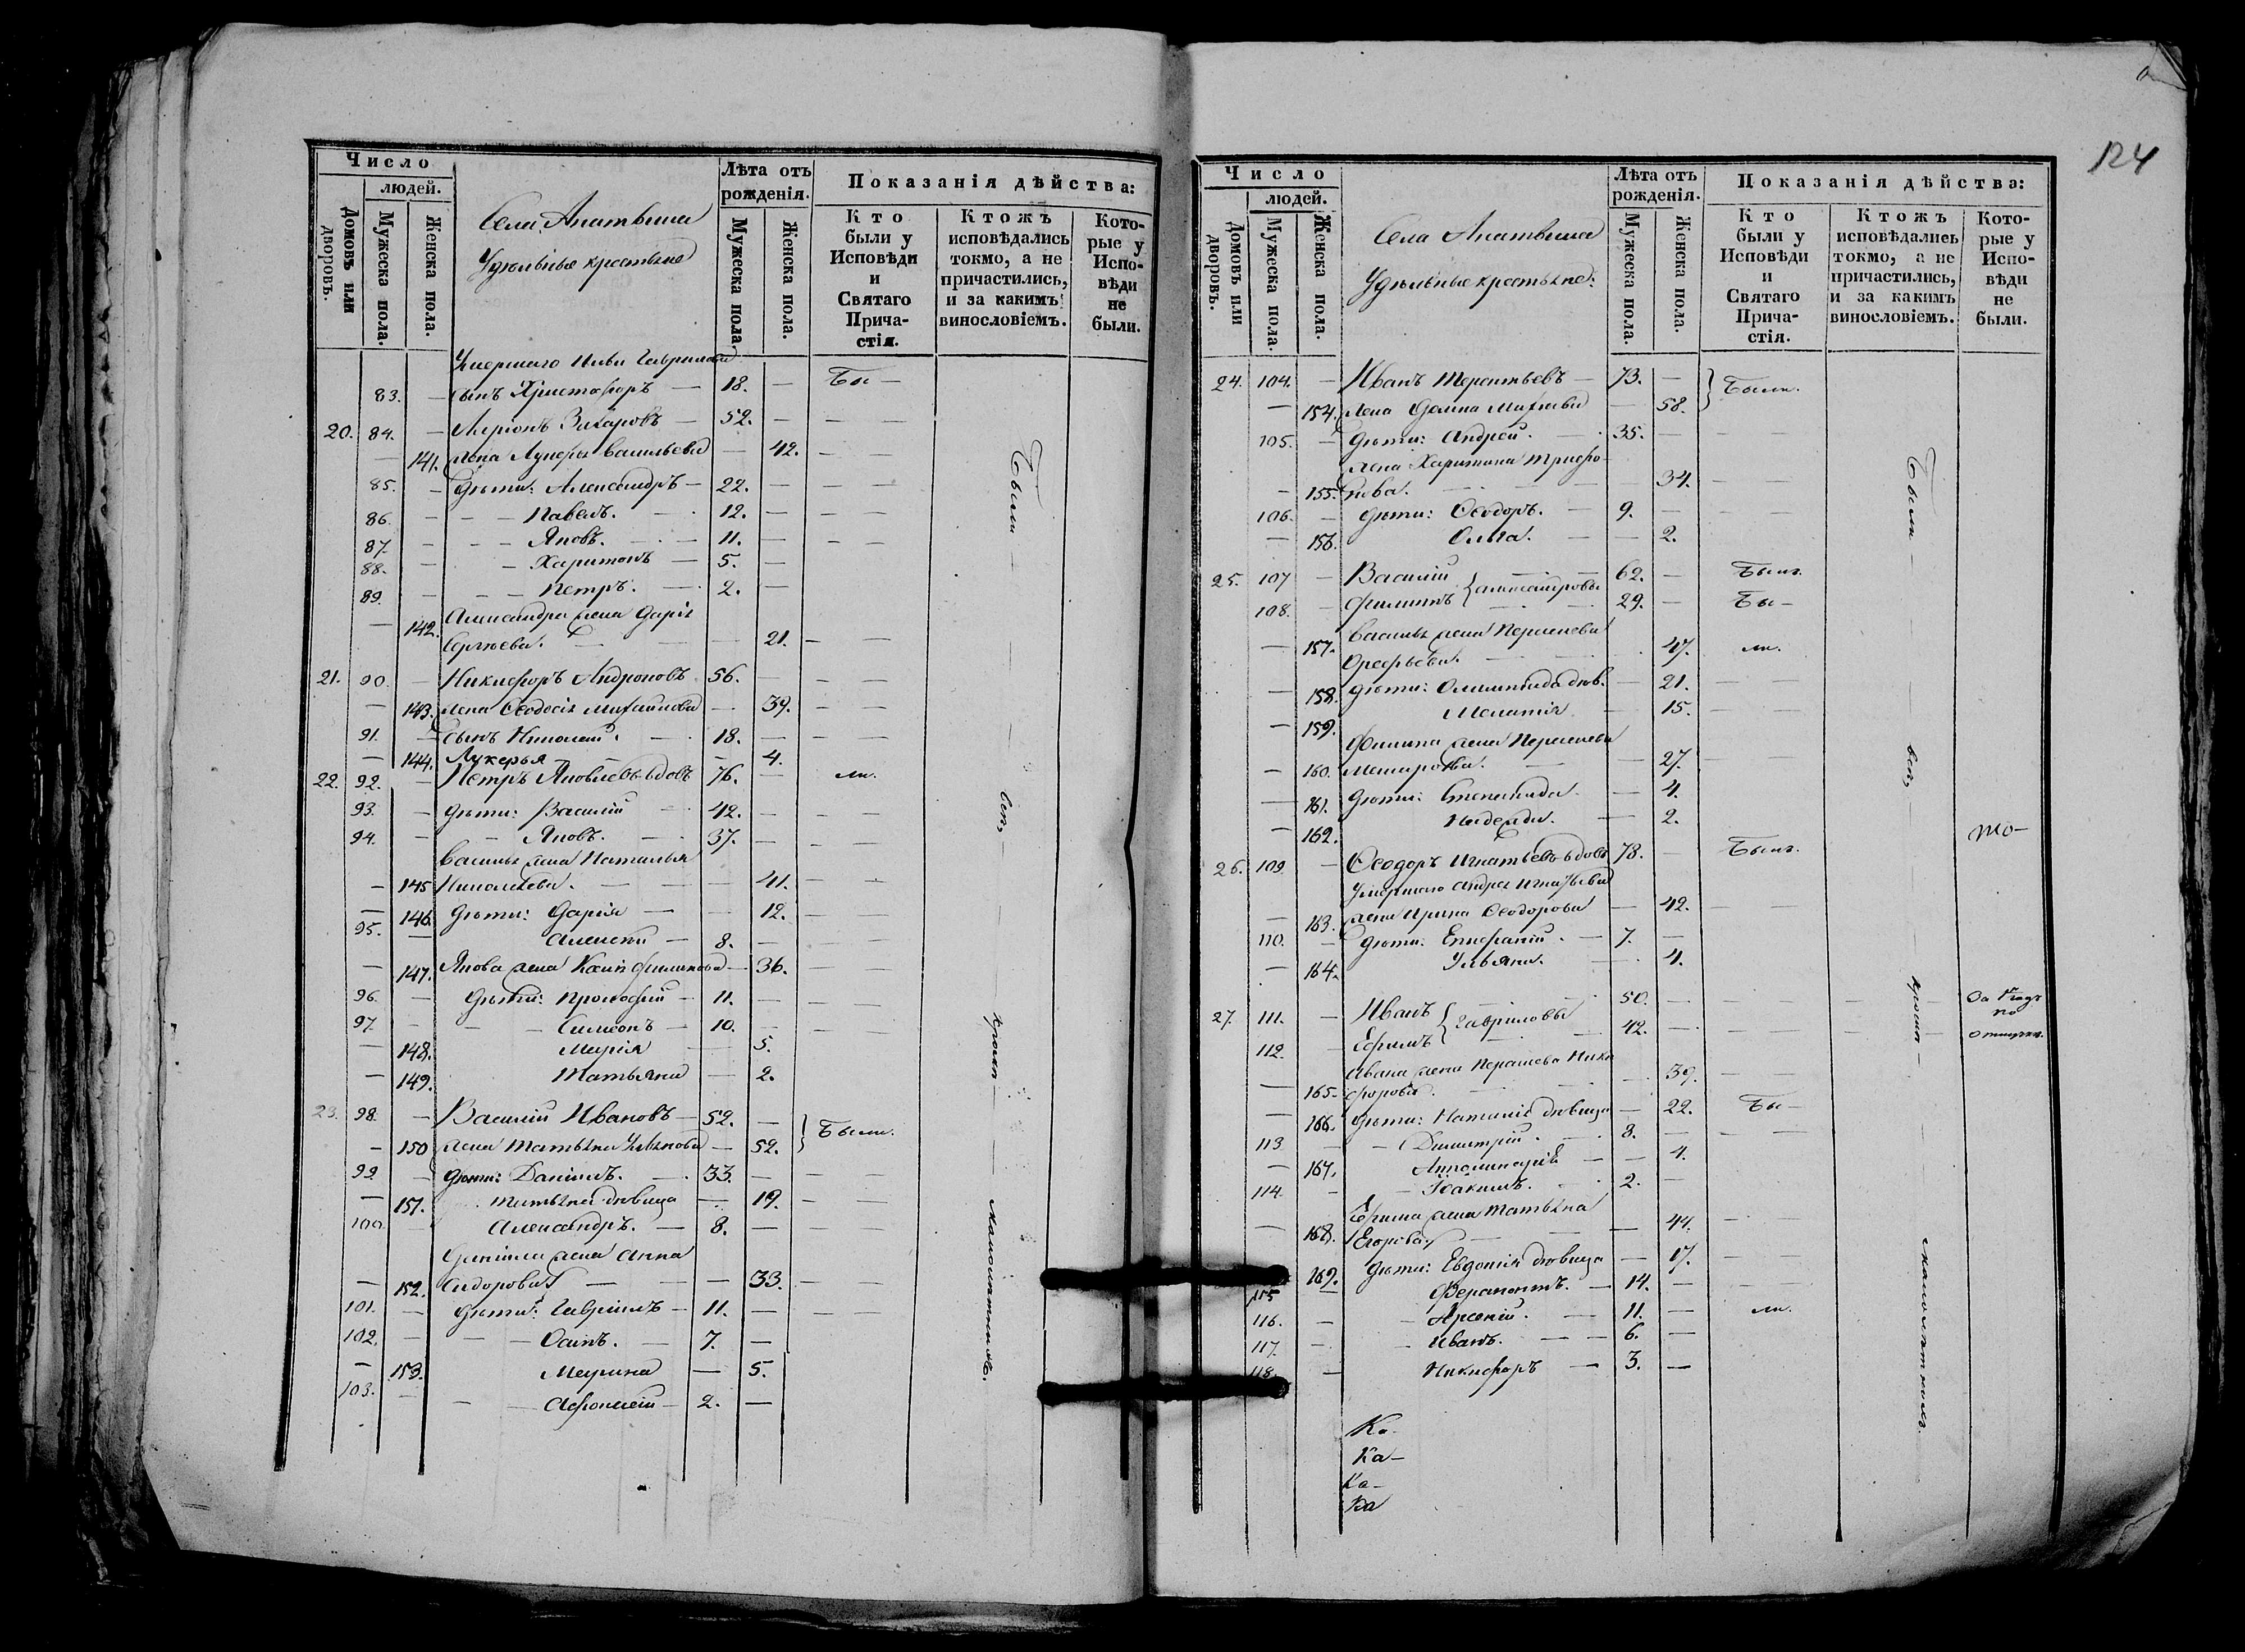 Число
людей.
Домовъ или дворовъ.
Мужеска пола.
Женска пола.
Села
Удѣльные крестьяне
Лѣта отъ рожденія.
Мужеска пола.
Женска пола.
Показанія дѣйства:
Кто были у Исповѣди и Святаго Причастія.
Ктожъ исповѣдались токмо, а не причастились, и за какимъ винословіемъ.
Которые у Исповѣди не были.
Умершаго Гаврилова
83. — сынъ Христофоръ — 18. — Бы —
20. 84. — Захаровъ — 52. —
141. жена Васильева — 42. —
85. — дѣти: Александръ — 22. —
86. — Павелъ. — 12. —
87. — Яковъ. — 11. —
88. — Харитонъ — 5. —
89. — Петръ. — 2. —
Александра жена Дарія
142. Сергѣева. — 21. —
21. 90. — Никифоръ Андроновъ 56. —
143. жена Ѳеодосія Михайлова — 39. —
91. — сынъ Николай. — 18. —
144. Лукерья — 4.
22. 92. — Петръ Яковлевъ вдовъ 76. — ли.
93. — дѣти: Василій — 42. —
94. — Яковъ. — 37. —
Василья жена Наталья
145 Николаева. — 41. —
146. дѣти: Дарія — 12. —
95. — Алексѣй — 8. —
147. Якова жена Филипова — 36.
96. — дѣти: Прокофій — 11. —
97. — Симеонъ — 10. —
148. Марія — 5.
149. Татьяна — 2.
23. 98. — Василій Ивановъ — 52. —
Были.
150 жена Татьяна — 52.
99. — дѣти: Даніилъ. — 33. —
151. Татьяна дѣвица — 19. —
100. — Александръ. — 8. —
Даніила жена Анна
152. Сидорова — 33. —
101. — дѣти: Гавріилъ — 11. —
102. — Осипъ. — 7. —
153. Марина — 5.
103. — 2. —
Были — всѣ, — кромѣ — малолѣтнихъ.
124
Число
людей.
Домовъ или дворовъ.
Мужеска пола.
Женска пола.
Села
Удѣльные крестьяне:
Лѣта отъ рожденія.
Мужеска пола.
Женска пола.
Показанія дѣйства:
Кто были у Исповѣди и Святаго Причастія.
Ктожъ исповѣдались токмо, а не причастились, и за какимъ винословіемъ.
Которые у Исповѣди не были.
24. 104. — Иванъ Терентьевъ — 73. —
Были.
154. жена — 58.
105. — дѣти: Андрей. — 35. —
жена Харитина Трифо-
155. нова. — 34. —
106. — дѣти: Ѳеодоръ. — 9. —
156. Ольга. — 2.
25. 107 — Василій — 62. — Былъ.
108. — Филиппъ — 29. — Бы —
Василья жена
157. — 47. ли.
158. дѣти: Олимпіада дѣв. — 21. —
159. Меланія — 15. —
Филипа жена
160. — 27. —
161. дѣти: Степанида. — 4.
162. Надежда. — 2.
то —
26. 109 — Ѳеодоръ Игнатьевъ вдовъ 78. — Былъ.
Умершаго Андрея Игнатьева
163. жена Ирина Ѳеодорова — 42. —
110. — дѣти: Епифаній. — 7. —
164. Ульяна. — 4.
27. 111. — Иванъ 50. — За 1й годъ по
Гавриловы
112. — Ефимъ — 42. — отлучкѣ.
Ивана жена Ники
165. форова. — 39. —
166. дѣти: Наталія дѣвица — 22. Бы —
113 — Димитрій. — 8. —
167. — 4.
114. — Іоакимъ. — 2. —
Ефима жена Татьяна
168. Егорова — 44. —
169. дѣти: Евдокія дѣвица — 17. —
115 — Ферапонтъ. — 14. —
116. — Арсеній. — 11. — ли.
117. — Иванъ. — 6. —
118. — Никифоръ — 3. —
Были — всѣ, — кромѣ — малолѣтнихъ.
Ка-
Ка-
Ка-
Ва